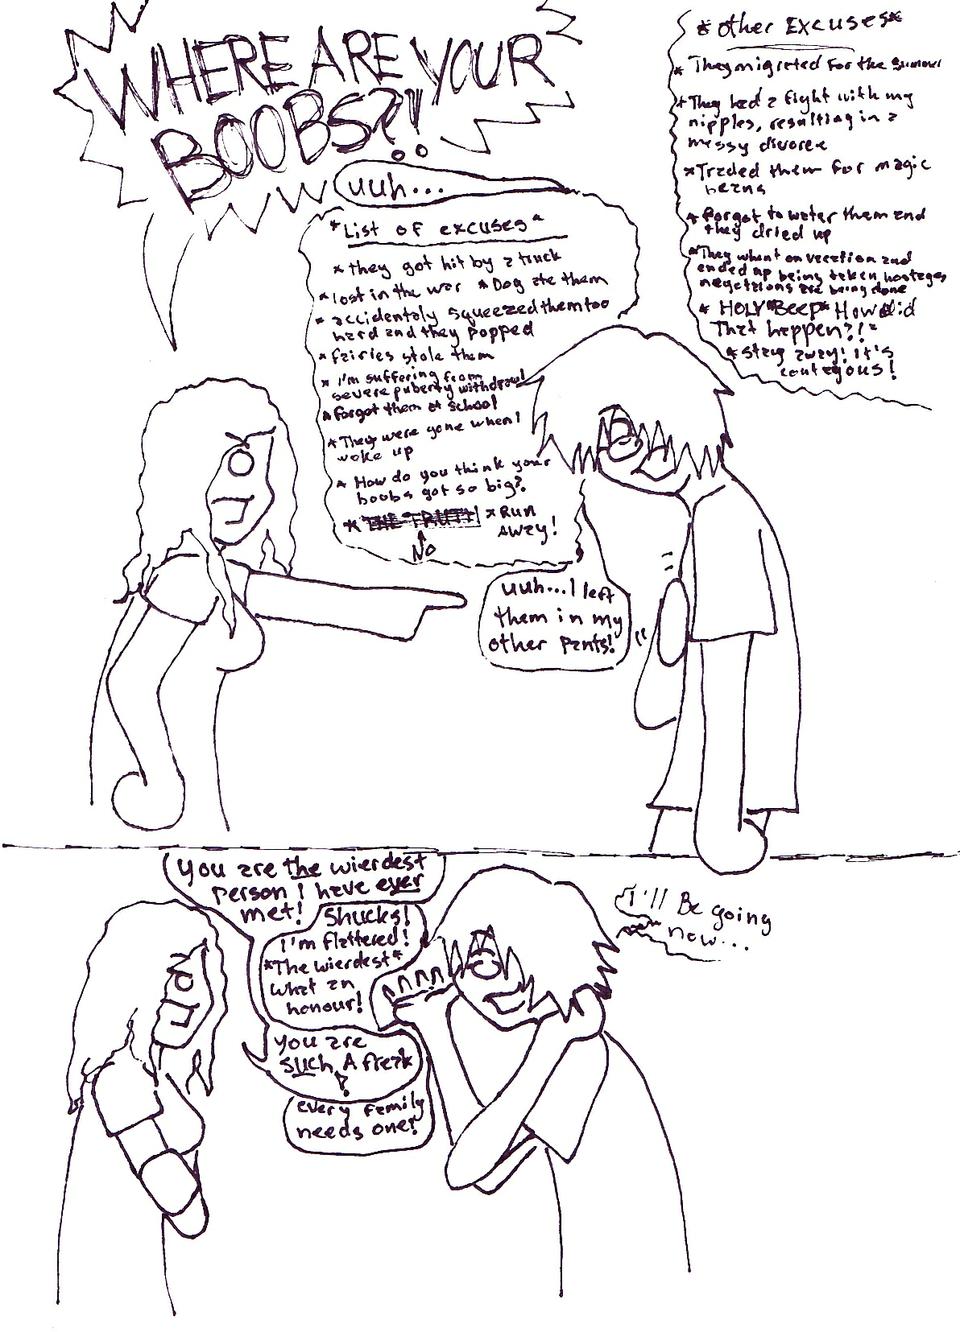 WHERE ARE YOUR
BOOBS?!
uuh...
*List of excuses*
* they got hit by a truck
* lost in the war * Dog ate them
* accidentaly squeezed them too
hard and they popped
* fairies stole them
* I'm suffering from
severe puberty withdrawl
* forgot them at school
* They were gone when I
woke up
* How do you think your
boobs got so big?
* THE TRUTH! * RUN
AWAY!
NO
* Other Excuses*
* They migrated for the summer
* They had a fight with my
nipples, resulting in a
messy divorce
* Traded them for magic
beans
* forgot to water them and
they dried up
* They whent on vacation and
ended up being taken hostages
negotations are being done
* HOLY *BEEP* How did
That happen?!*
* Stay away! it's
contagous!
uuh...I left
them in my
other pants!
You are the wierdest
person I have ever
met!
Shucks!
I'm flattered!
*The wierdest*
what an
honour!
You are
such A freak
!
every family
needs one!
I'll Be going
now...